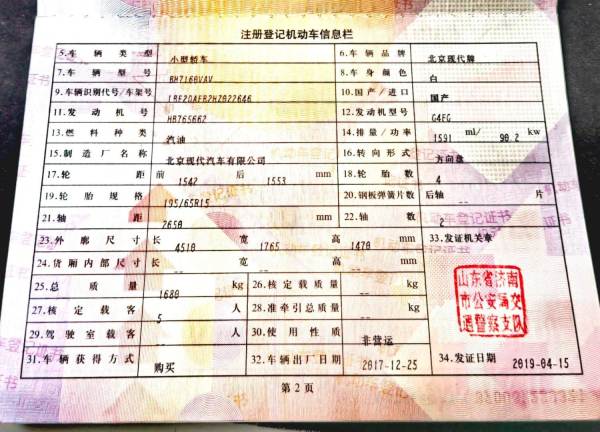 注册登记机动车信息栏
5.车辆类型 小型轿车 6.车辆品牌 北京现代牌
7.车辆型号 BH7160VAV 8.车身颜色 白
9.车辆识别代号/车架号 10.国产/进口 国产
11.发动机号 HB765662 12.发动机型号 G4FG
13.燃料种类 汽油 14.排量/功率 1591 ml/ 90.2 kw
15.制造厂名称 北京现代汽车有限公司 16.转向形式 方向盘
17.轮距 前 1542 后 1553 mm 18.轮胎数 4
19.轮胎规格 195/65R15 20.钢板弹簧片数 后轴 -- 片
21.轴距 2650 mm 22.轴数 2
23.外廓尺寸 长 4510 宽 1765 高 1470 mm 33.发证机关章
24.货厢内部尺寸 长 -- 宽 -- 高 -- mm
25.总质量 1680 kg 26.核定载质量 -- kg
27.核定载客 5 人 28.准牵引总质量 -- kg
29.驾驶室载客 -- 人 30.使用性质 非营运
31.车辆获得方式 购买 32.车辆出厂日期 2017-12-25 34.发证日期 2019-04-15
山东省济南
市公安局交
通警察支队
第2页